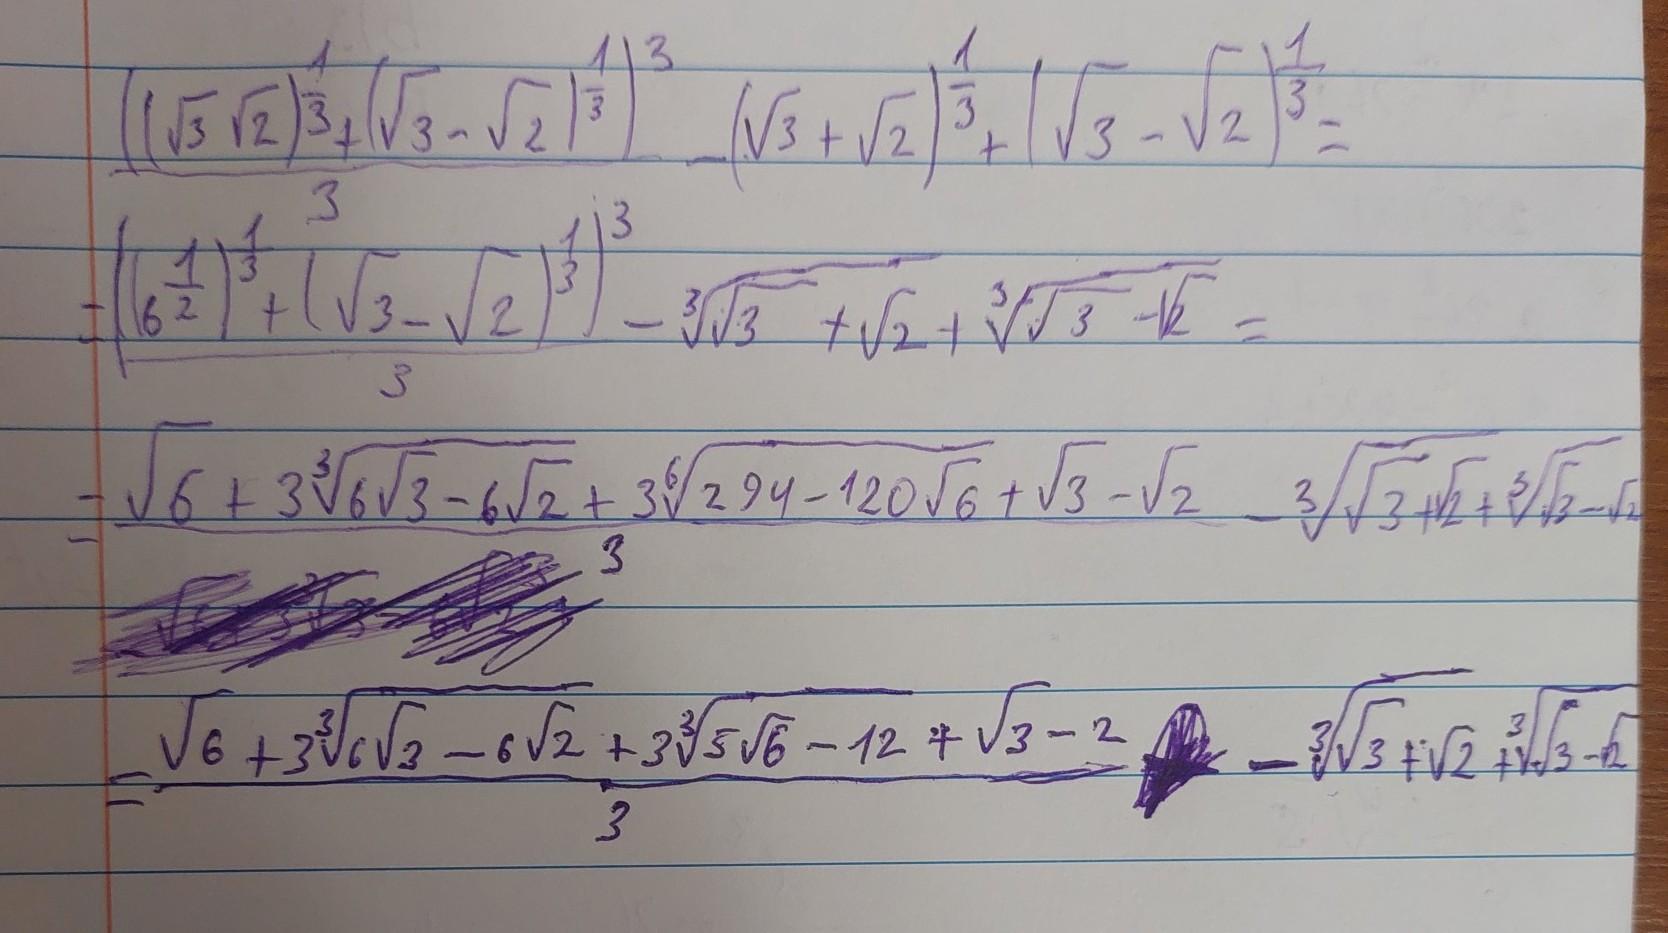 ((√3 √2)^(1/3) + (√3 - √2)^(1/3))^3 / 3 - (√3 + √2)^(1/3) + (√3 - √2)^(1/3) =
= ((6^(1/2))^(1/3) + (√3 - √2)^(1/3))^3 / 3 - ∛(√3 + √2) + ∛(√3 - √2) =
= (√6 + 3∛(6√3 - 6√2) + 3⁶√(294 - 120√6) + √3 - √2) / 3 - ∛(√3 + √2) + ∛(√3 - √2)
= (√6 + 3∛(6√3 - 6√2) + 3∛(5√6 - 12) + √3 - 2) / 3 - ∛(√3 + √2) + ∛(√3 - √2)